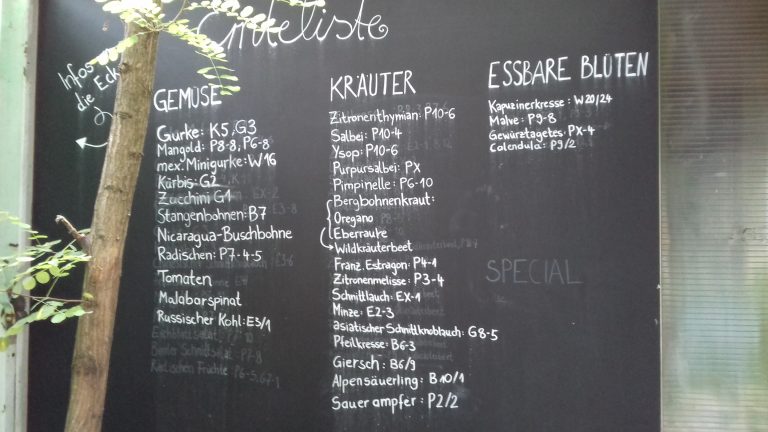 Ernteliste
Infos
die Eck
GEMÜSE
Gurke: K5, G3
Mangold: P8-8, P6-8
mex. Minigurke: W16
Kürbis: G2
Zucchini G1
Stangenbohnen: B7
Nicaragua-Buschbohne
Radischen: P7-4-5
Tomaten
Malabarspinat
Russischer Kohl: E3/1
Eichblattsalat
Bunter Schnittsalat: P7-8
Radischen Früchte: P6-5, G7-1
KRÄUTER
Zitronenthymian: P10-6
Salbei: P10-4
Ysop: P10-6
Purpursalbei: PX
Pimpinelle: P6-10
Bergbohnenkraut:
Oregano
Eberraute
Wildkräuterbeet
Franz. Estragon: P4-1
Zitronenmelisse: P3-4
Schnittlauch: EX-1
Minze: E2-3
asiatischer Schnittknoblauch: G8-5
Pfeilkresse: B6-3
Giersch: B6/9
Alpensäuerling: B10/1
Sauerampfer: P2/2
ESSBARE BLÜTEN
Kapuzinerkresse: W20/24
Malve: P9-8
Gewürztagetes: PX-4
Calendula: P9/2
SPECIAL